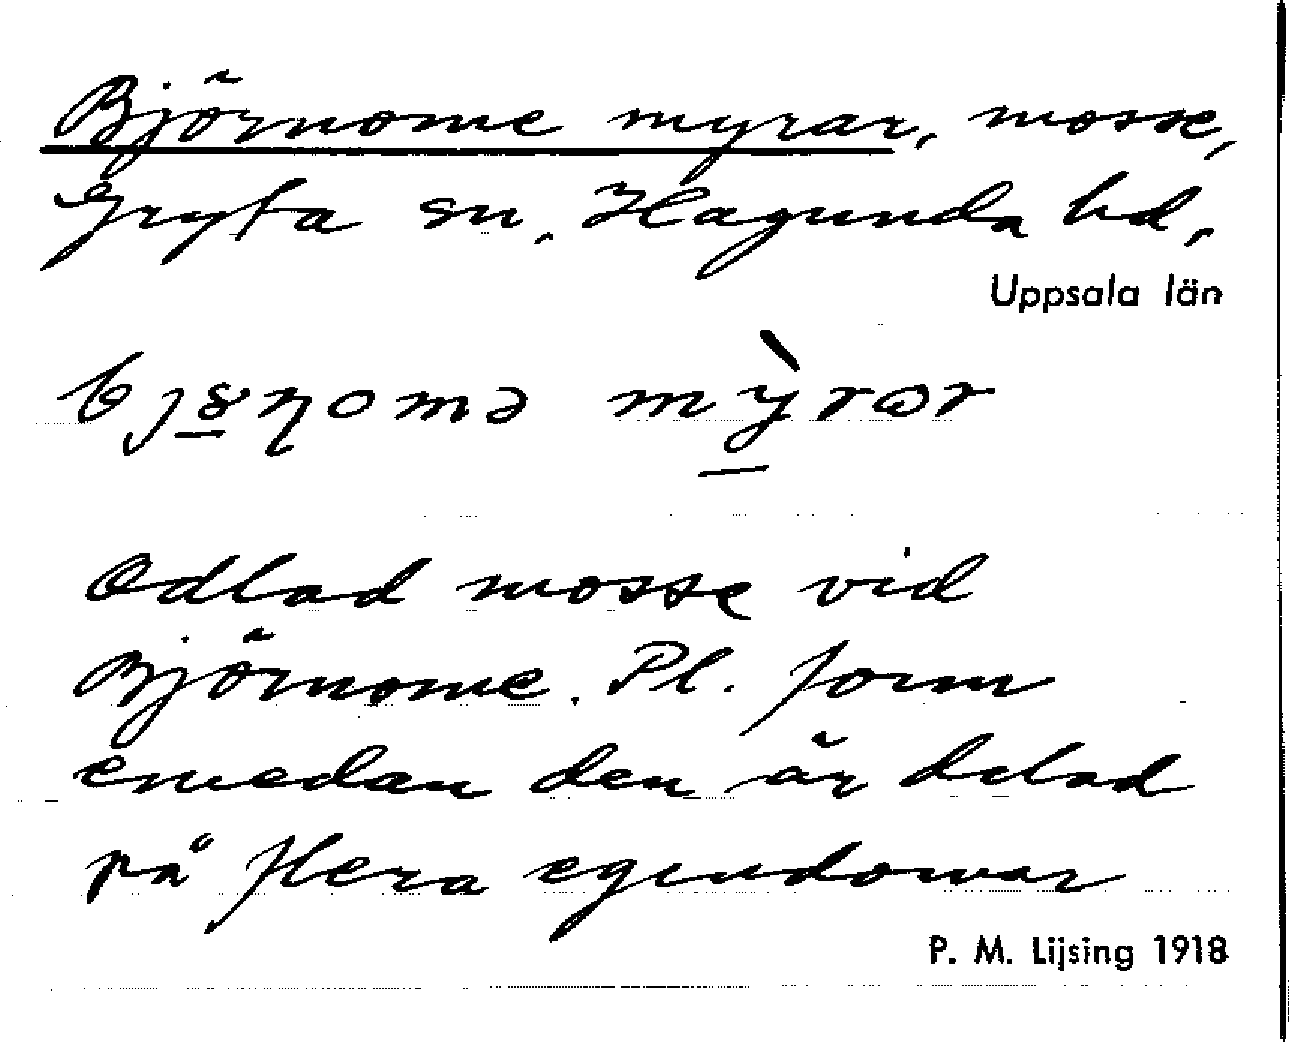 Björnome myrar, mosse,
Gryta sn, Hagunda hd,
Uppsala län
bjȣ̲ɳomə mỳ̲rar
Odlad mosse vid
Björnome. Pl. form
emedan den är delad
på flera egendomar
P. M. Lijsing 1918